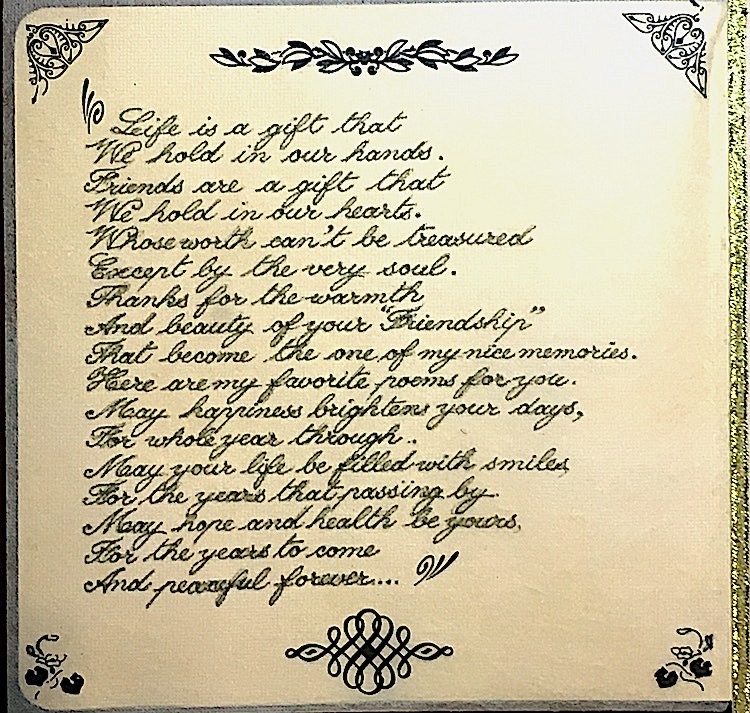 Life is a gift that
We hold in our hands.
Friends are a gift that
We hold in our hearts.
Whose worth can't be treasured
Except by the very soul.
Thanks for the warmth
And beauty of your "Friendship"
That become the one of my nice memories.
Here are my favorite poems for you.
May happiness brightens your days,
For whole year through..
May your life be filled with smiles,
For the years that passing by.
May hope and health be yours,
For the years to come
And peaceful forever....